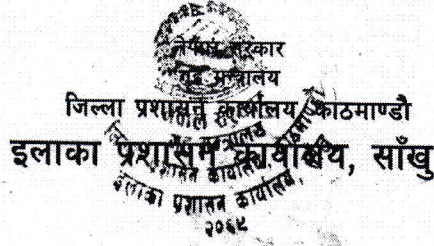 नेपाल सरकार
गृह मन्त्रालय
जिल्ला प्रशासन कार्यालय काठमाण्डौ
इलाका प्रशासन कार्यालय, साँखु
इलाका प्रशासन कार्यालय,
२०६९